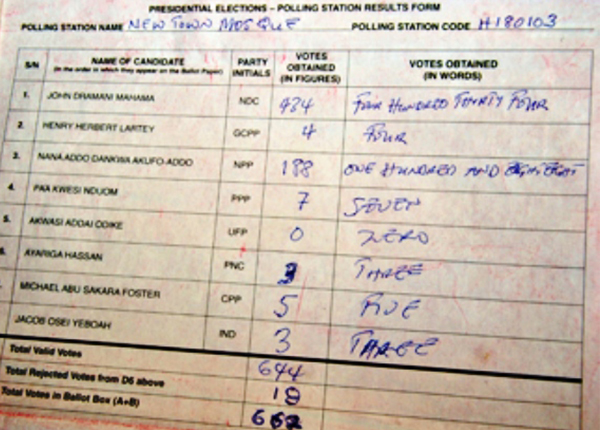 PRESIDENTIAL ELECTIONS – POLLING STATION RESULTS FORM
POLLING STATION NAME NEW TOWN MOSQUE POLLING STATION CODE H180103
S/N NAME OF CANDIDATE (in the order in which they appear on the Ballot Paper) PARTY INITIALS VOTES OBTAINED (IN FIGURES) VOTES OBTAINED (IN WORDS)
1. JOHN DRAMANI MAHAMA NDC 434 FOUR HUNDRED THIRTY FOUR
2. HENRY HERBERT LARTEY GCPP 4 FOUR
3. NANA ADDO DANKWA AKUFO-ADDO NPP 188 ONE HUNDRED AND
4. PAA KWESI NDUOM PPP 7 SEVEN
5. AKWASI ADDAI ODIKE UFP 0 ZERO
AYARIGA HASSAN PNC 3 THREE
MICHAEL ABU SAKARA FOSTER CPP 5 FIVE
JACOB OSEI YEBOAH IND 3 THREE
Total Valid Votes 644
Total Rejected Votes from D6 above 18
Total Votes in Ballot Box (A+B) 662